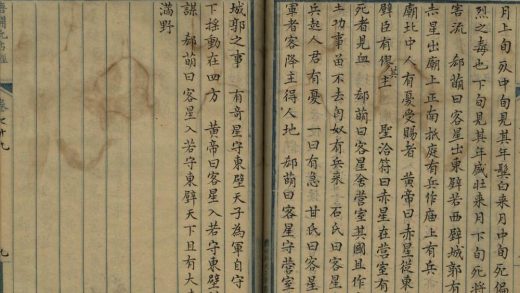 月上旬死中旬見其年鬢白來月中旬死偏
烈之毒也下旬見其年盛壯來月下旬死將
害流 郄萌曰客星出東壁若西壁城郭有
赤星出廟上正南抵庭有兵作廟上有兵
廟北中人有憂受賜者 黃帝曰赤星從東
壁臣有僇其主 聖洽符曰赤星在營室有
死者見血 郄萌曰客星舍營室其國且作
土功事苗不去匈奴有兵來 石氏曰客星
兵起人君有憂 一曰有急 甘氏曰客星
軍者客降主得人地 郄萌曰客星守營室
城郭之事 有奇星守東壁天子為軍自守
下搖動在四方 黃帝曰客星入若守東壁
謀 郄萌曰客星入若守東壁天下且有大
滿野
九